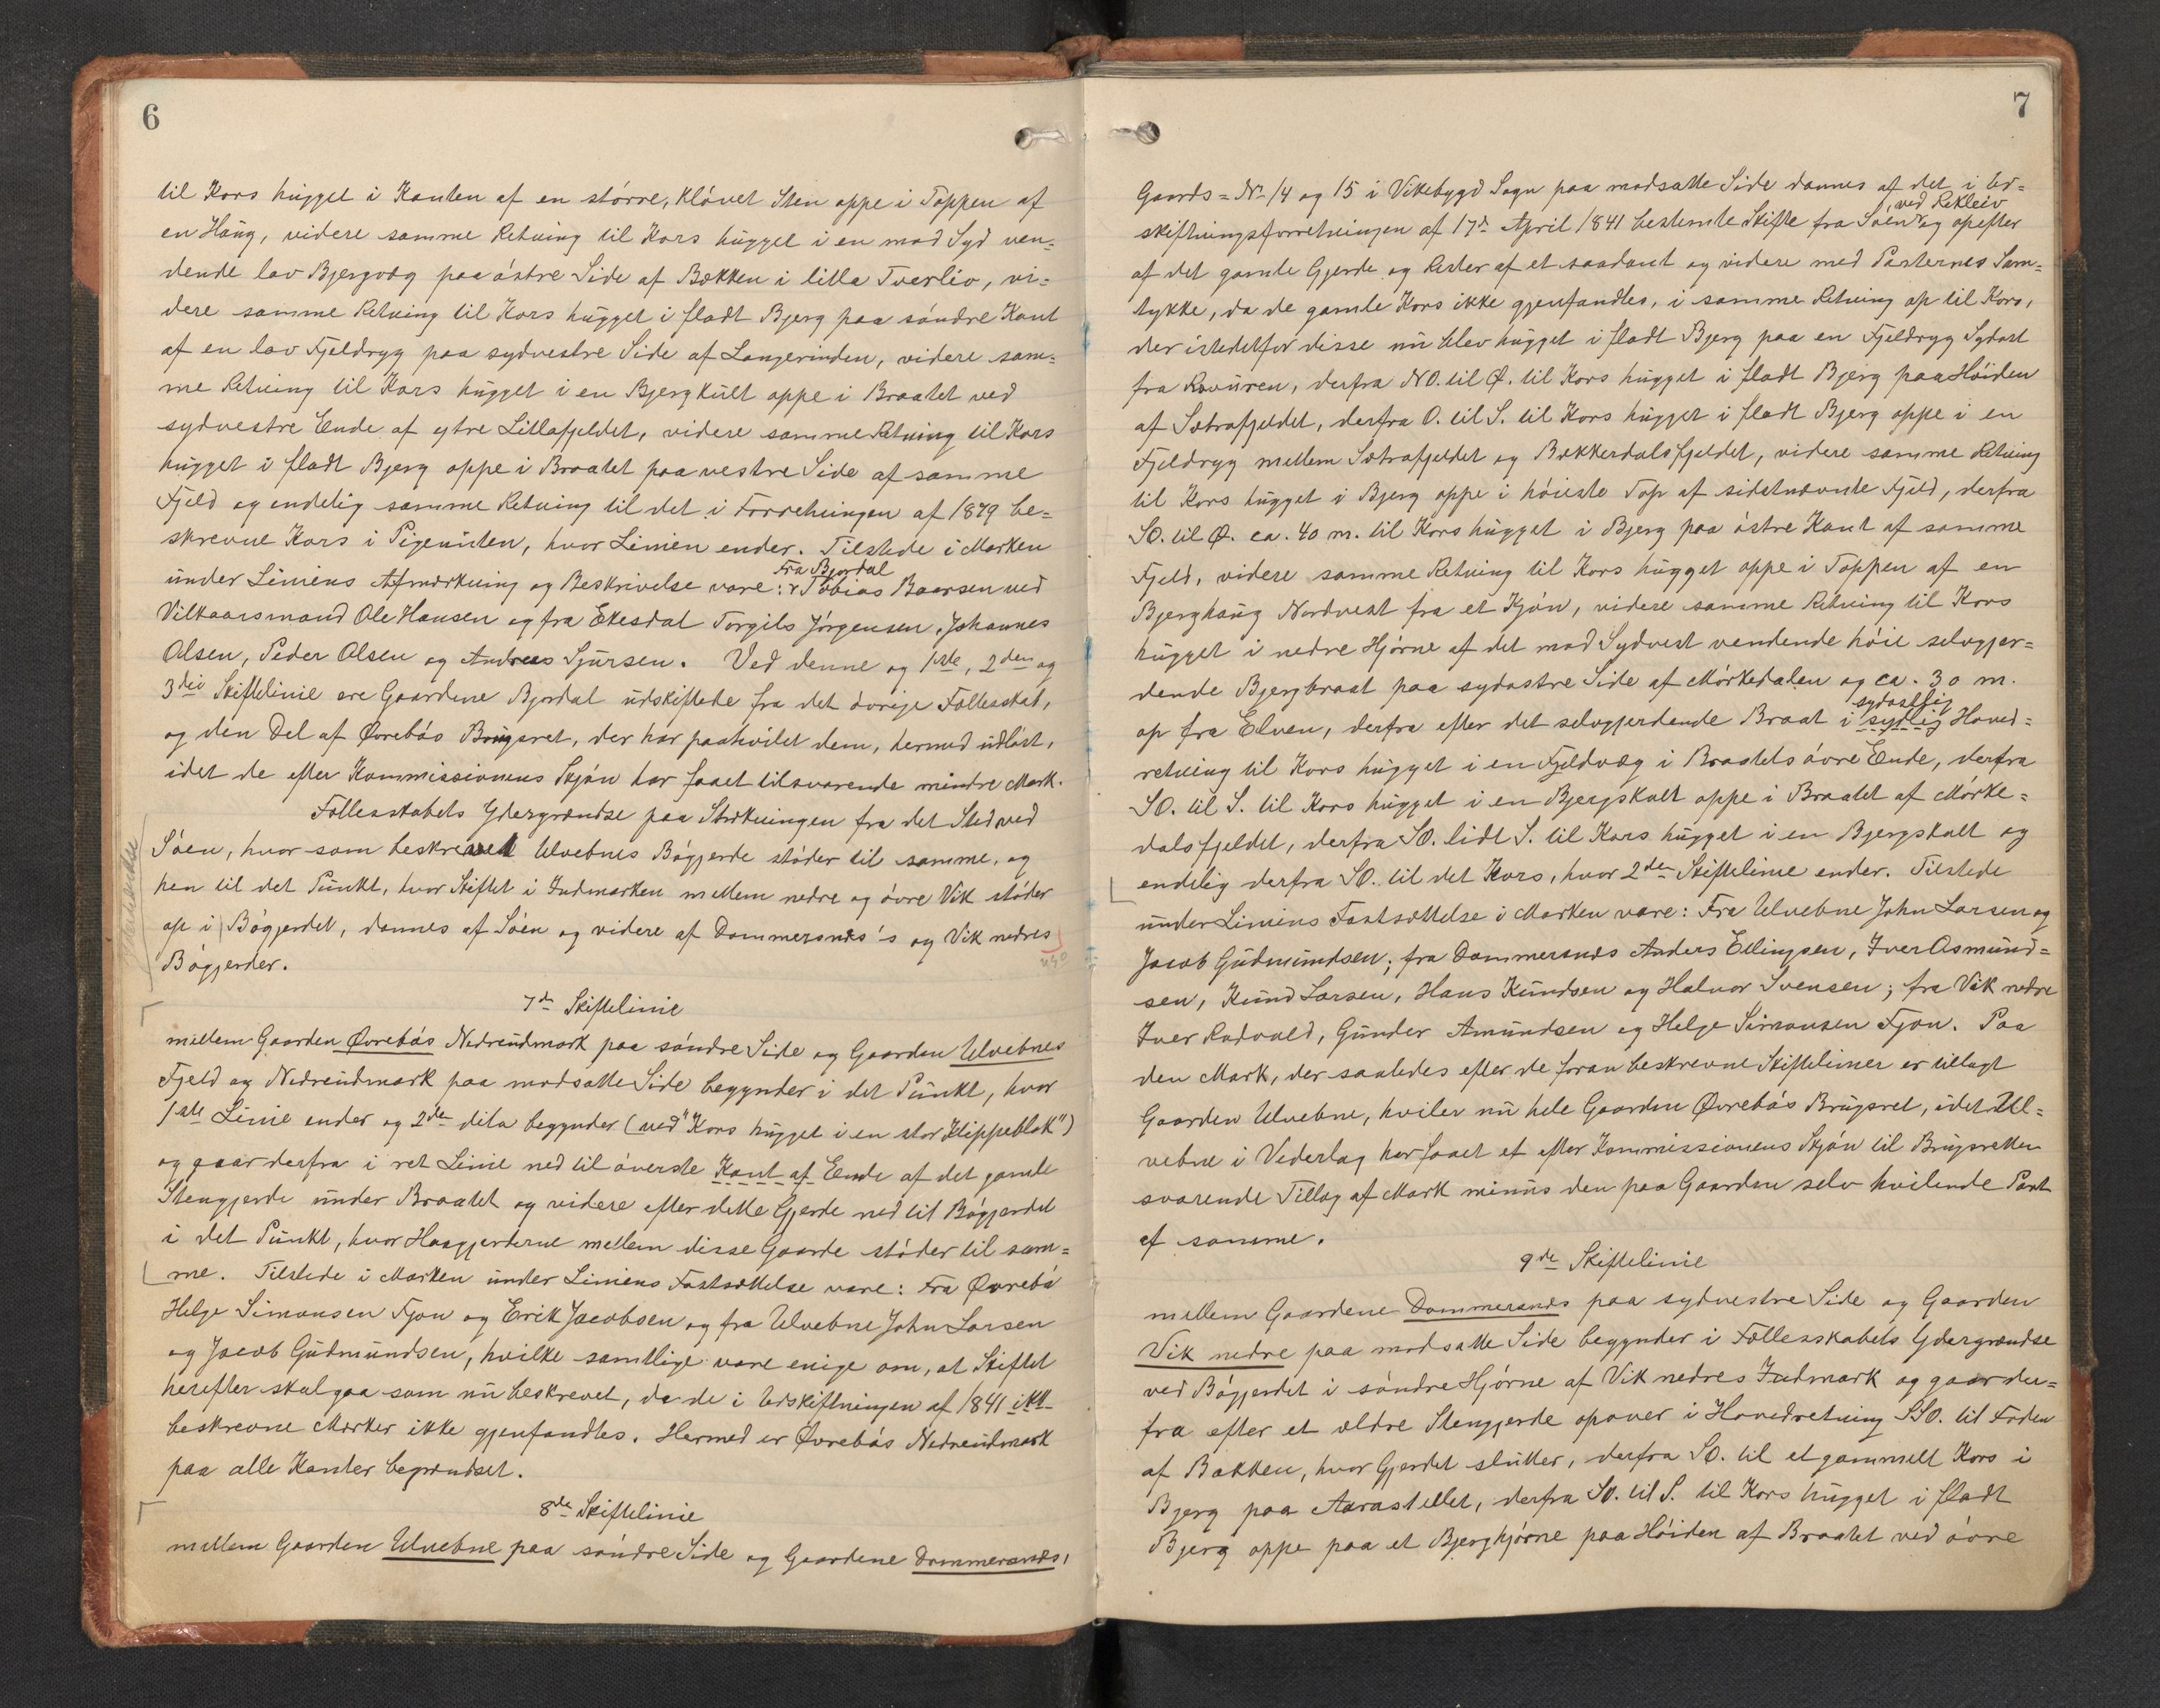 6
til Kors hugget i Kanten af en større, kløvet Sten oppe i Toppen af
en Haug, videre samme Retning til Kors hugget i en mod Syd ven-
dende lav Bjergvæg paa østre Side af Bækken i litla Tverliv, vi-
dere samme Retning til Kors hugget i fladt Bjerg paa søndre Kant
af en lav Fjeldryg paa sydvestre Side af Langerinden, videre sam-
me Retning til Kors hugget i en Bjergkult oppe i Braatet ved
sydvestre Ende af ytre Litlafjeldet, videre samme Retning til Kors
hugget i fladt Bjerg oppe i Braatet paa vestre Side af samme
Fjeld og endelig samme Retning til det i Forretningen af 1879 be-
skrevne Kors i Pigenuten, hvor Linien ender. Tilstede i Marken
under Liniens Afmærkning og Beskrivelse vare: Fra Bjordal Tobias Baarsen ved
Vilkaarsmand Ole Hansen og fra Ekesdal Torgils Jørgensen, Johannes
Olsen, Peder Olsen og Andreas Sjursen. Ved denne og 1ste, 2den og
3die Skiftelinie ere Gaardene Bjordal udskiftede fra det øvrige Fællesskab,
og den Del af Øvrebøs Brugsret, der har paahvilet dem, hermed udløst,
idet de efter Kommissionens Skjøn har faaet tilsvarende mindre Mark.
Fællesskabets Ydergrændse paa Strækningen fra det Sted ved
Søen, hvor som beskrevet Ulvebnes Bøgjerde støder til samme, og
hen til det Punkt, hvor Skiftet i Indmarken mellem nedre og øvre Vik støder
op i Bøgjerdet, dannes af Søen og videre af Dommersnes's og Vik nedres
Bøgjerder.
7de Skiftelinie
mellem Gaarden Øvrebøs Nedreudmark paa søndre Side og Gaarden Ulvebnes
Fjeld og Nedreudmark paa modsatte Side begynder i det Punkt, hvor
1ste Linie ender og 2den dito begynder (ved "Kors hugget i en stor Klippeblok")
og gaar derfra i ret Linie ned til øverste Kant af Ende af det gamle
Stengjerde under Braatet og videre efter dette Gjerde ned til Bøgjerdet
i det Punkt, hvor Hasgjerderne mellem disse Gaarde støder til sam-
me. Tilstede i Marken under Liniens Fastsættelse vare: Fra Øvrebø
Helge Simonsen Fjon og Erik Jacobsen og fra Ulvebne John Larsen
og Jacob Gudmundsen, hvilke samtlige vare enige om, at Skiftet
herefter skal gaa som nu beskrevet, da de i Udskiftningen af 1841
beskrevne Mærker ikke gjenfandtes. Hermed er Øvrebøs Nedreudmark
paa alle Kanter begrændset.
8de Skiftelinie
mellem Gaarden Ulvebne paa søndre Side og Gaardene Dommersnes,
7
Gaards-Nr 14 og 15 i Vikebygd Sogn paa modsatte Side dannes af det i Ud-
skiftningsforretningen af 17de April 1841 bestemte Skifte fra Søen, ved Rekleiv og opefter
af det gamle Gjerde og Rester af et saadant og videre med Parternes Sam-
tykke, da de gamle Kors ikke gjenfandtes, i samme Retning op til Kors,
der istedetfor disse nu blev hugget i fladt Bjerg paa en Fjeldryg Sydost
fra Ravuren, derfra NO. til Ø. til Kors hugget i fladt Bjerg paa Høiden
af Sætrafjeldet, derfra O. til S. til Kors hugget i fladt Bjerg oppe i en
Fjeldryg mellem Sætrafjeldet og Bækkerdalsfjeldet, videre samme Retning
til Kors hugget i Bjerg oppe i høieste Top af sidstnævnte Fjeld, derfra
SO. til Ø. ca. 40 m. til Kors hugget i Bjerg paa østre Kant af samme
Fjeld, videre samme Retning til Kors hugget oppe i Toppen af en
Bjerghaug Nordvest fra et Kjøn, videre samme Retning til Kors
hugget i nedre Hjørne af det mod Sydvest vendende høie selvgjer-
dende Bjergbraat paa sydøstre Side af Mørkedalen og ca. 30 m.
op fra Elven, derfra efter det selvgjerdende Braat i sydlig sydostlig Hoved-
retning til Kors hugget i en Fjeldvæg i Braatets øvre Ende, derfra
SO. til S. til Kors hugget i en Bjergskalt oppe i Braatet af Mørke-
dalsfjeldet, derfra SO. lidt S. til Kors hugget i en Bjergskalt og
endelig derfra SO. til det Kors, hvor 2den Skiftelinie ender. Tilstede
under Liniens Fastsættelse i Marken vare: Fra Ulvebne John Larsen og
Jacob Gudmundsen; fra Dommersnes Anders Ellingsen, Iver Osmund-
sen, Knud Larsen, Hans Knudsen og Halvor Svensen; fra Vik nedre
Iver Rødvald, Gunder Amundsen og Helge Simonsen Fjon. Paa
den Mark, der saaledes efter de foran beskrevne Skiftelinier er tillagt
Gaarden Ulvebne, hviler nu hele Gaarden Øvrebøs Brugsret, idet Ul-
vebne i Vederlag har faaet et efter Kommissionens Skjøn til Brugsretten
svarende Tillæg af Mark minus den paa Gaarden selv hvilende Part
af samme.
9de Skiftelinie
mellem Gaardene Dommersnes paa sydvestre Side og Gaarden
Vik nedre paa modsatte Side begynder i Fællesskabets Ydergrændse
ved Bøgjerdet i søndre Hjørne af Vik nedres Indmark og gaar der-
fra efter et ældre Stengjerde opover i Hovedretning SSO. til Foden
af Bakken, hvor Gjerdet slutter, derfra SO. til et gammelt Kors i
Bjerg paa Aarastellet, derfra SO. til S. til Kors hugget i fladt
Bjerg oppe paa et Bjerghjørne paa Høiden af Braatet ved øvre